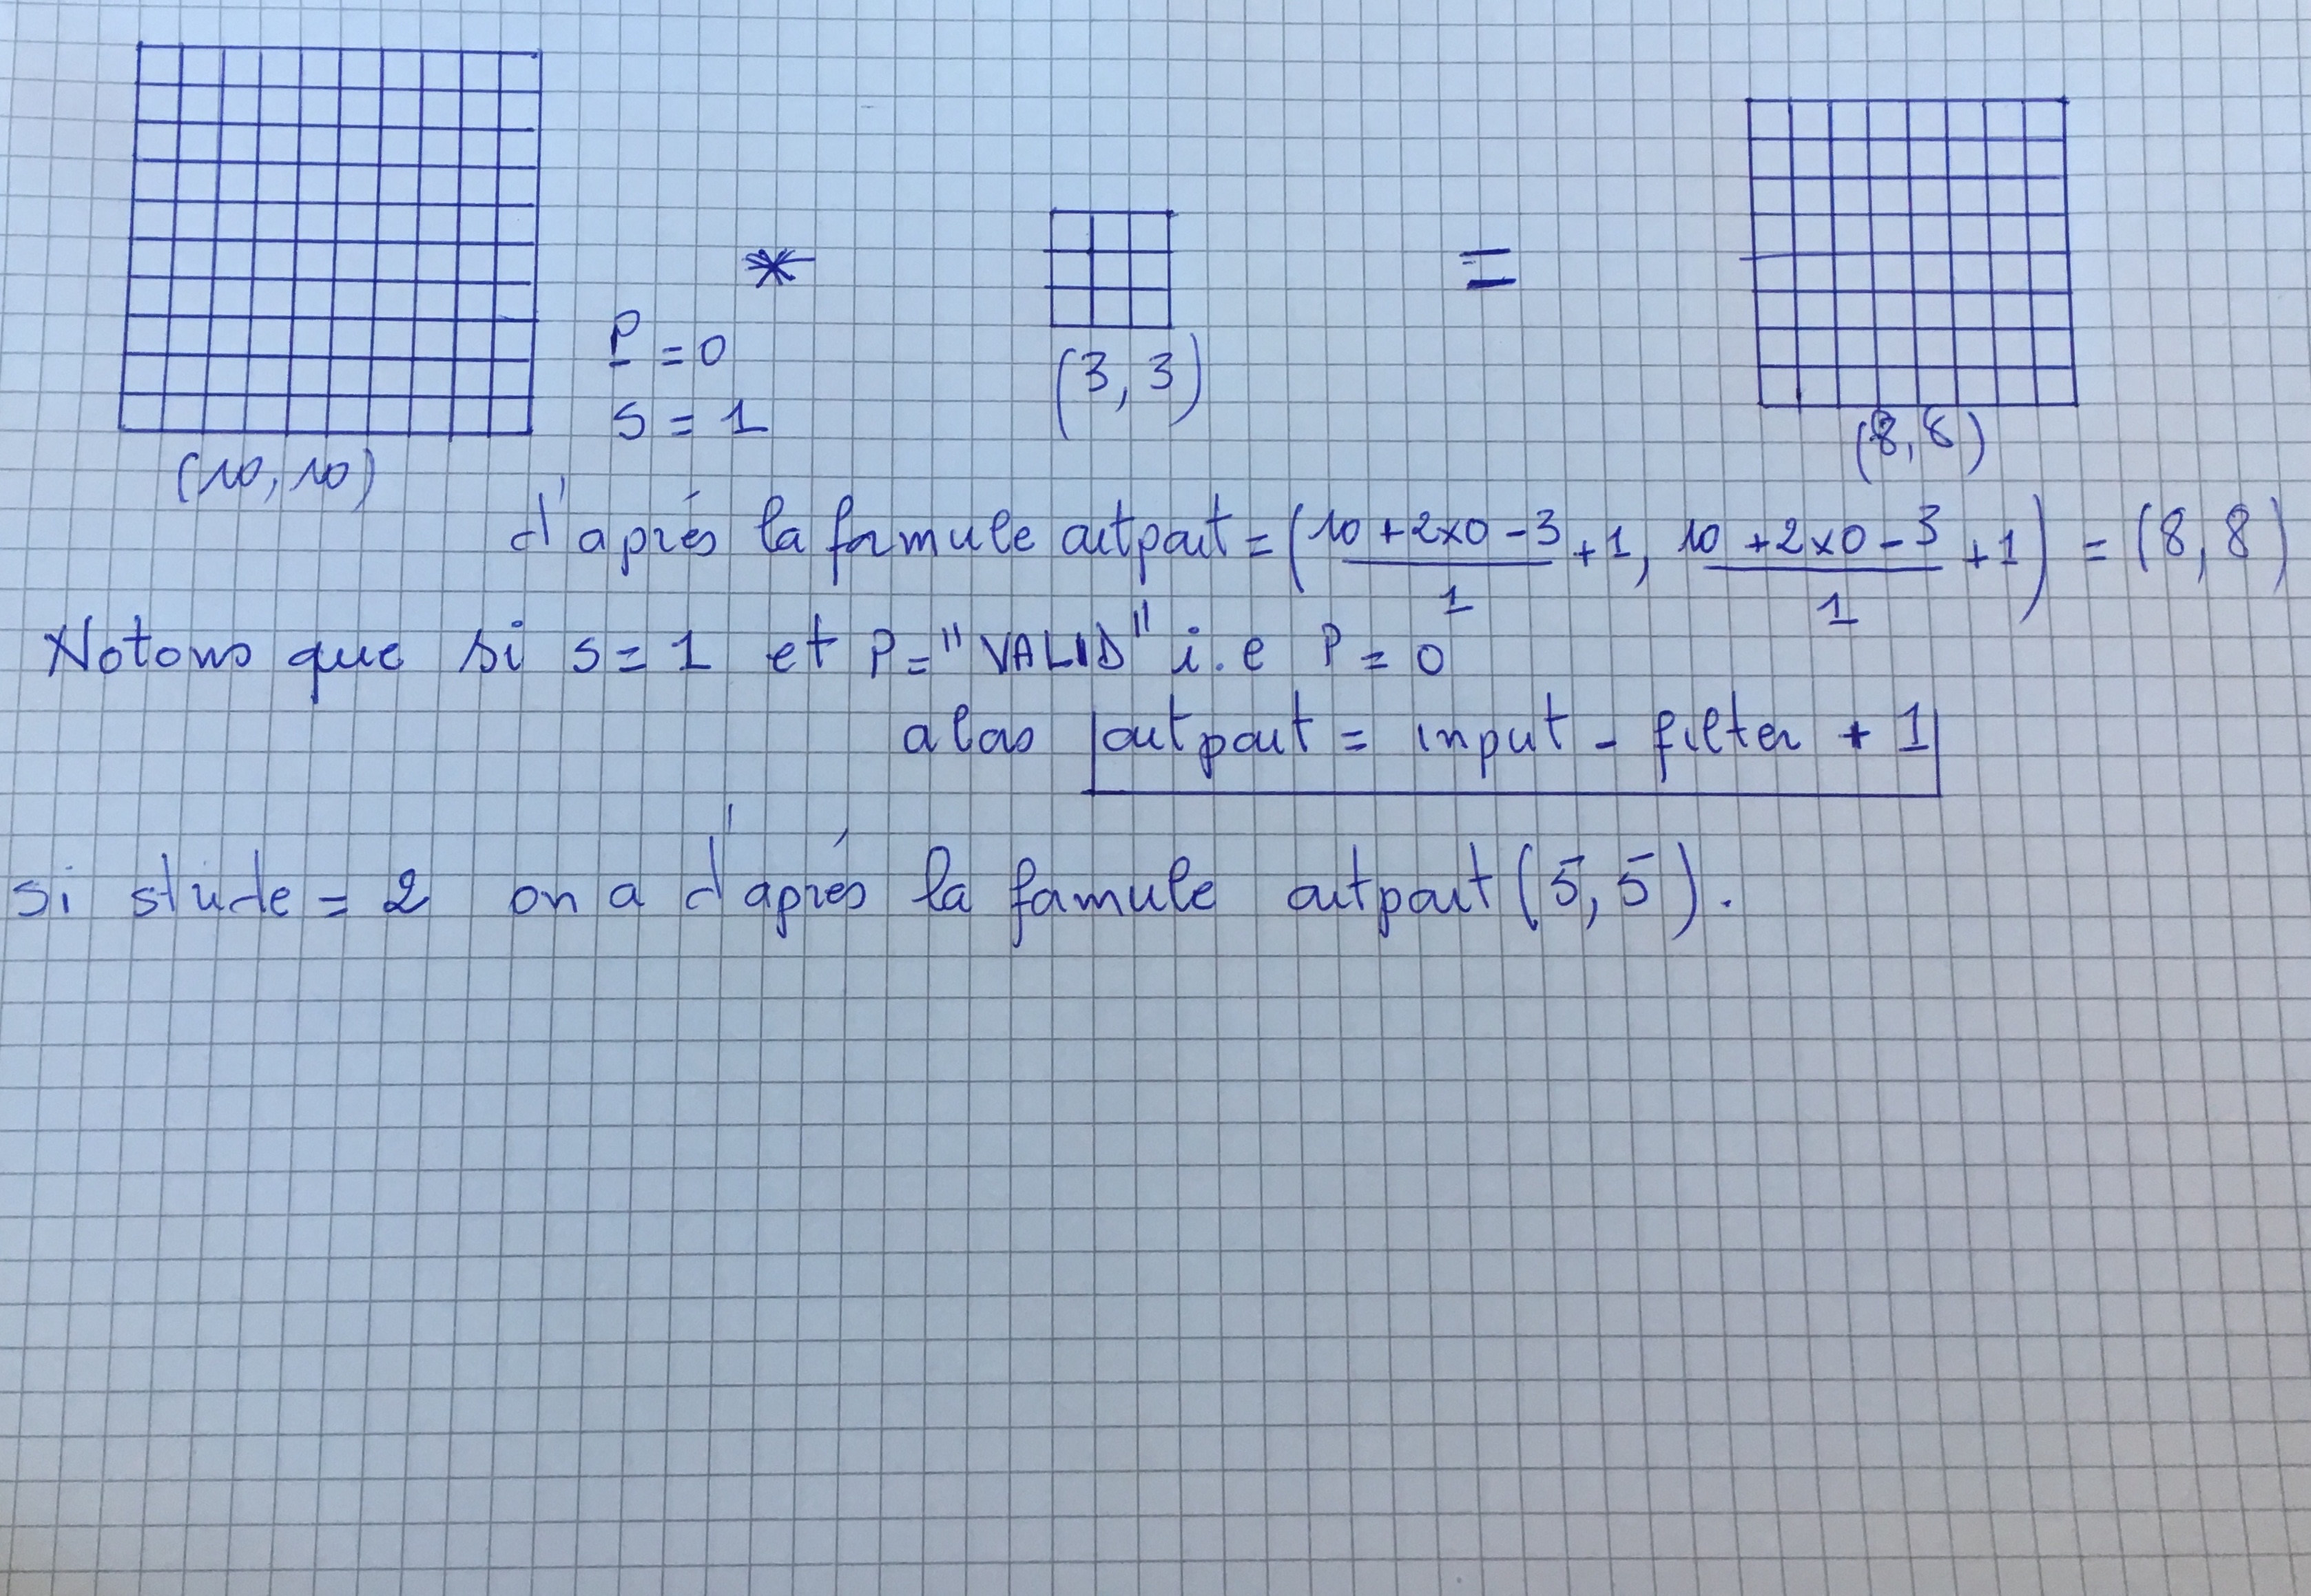 *
=
P = 0
S = 1
(3, 3)
(8, 8)
(10, 10)
d'après la formule output = (10 + 2x0 - 3 / 1 + 1, 10 + 2x0 - 3 / 1 + 1) = (8, 8)
Notons que si s = 1 et P = "VALID" i.e P = 0
alors output = input - filter + 1
si stride = 2 on a d'après la formule output (5, 5).